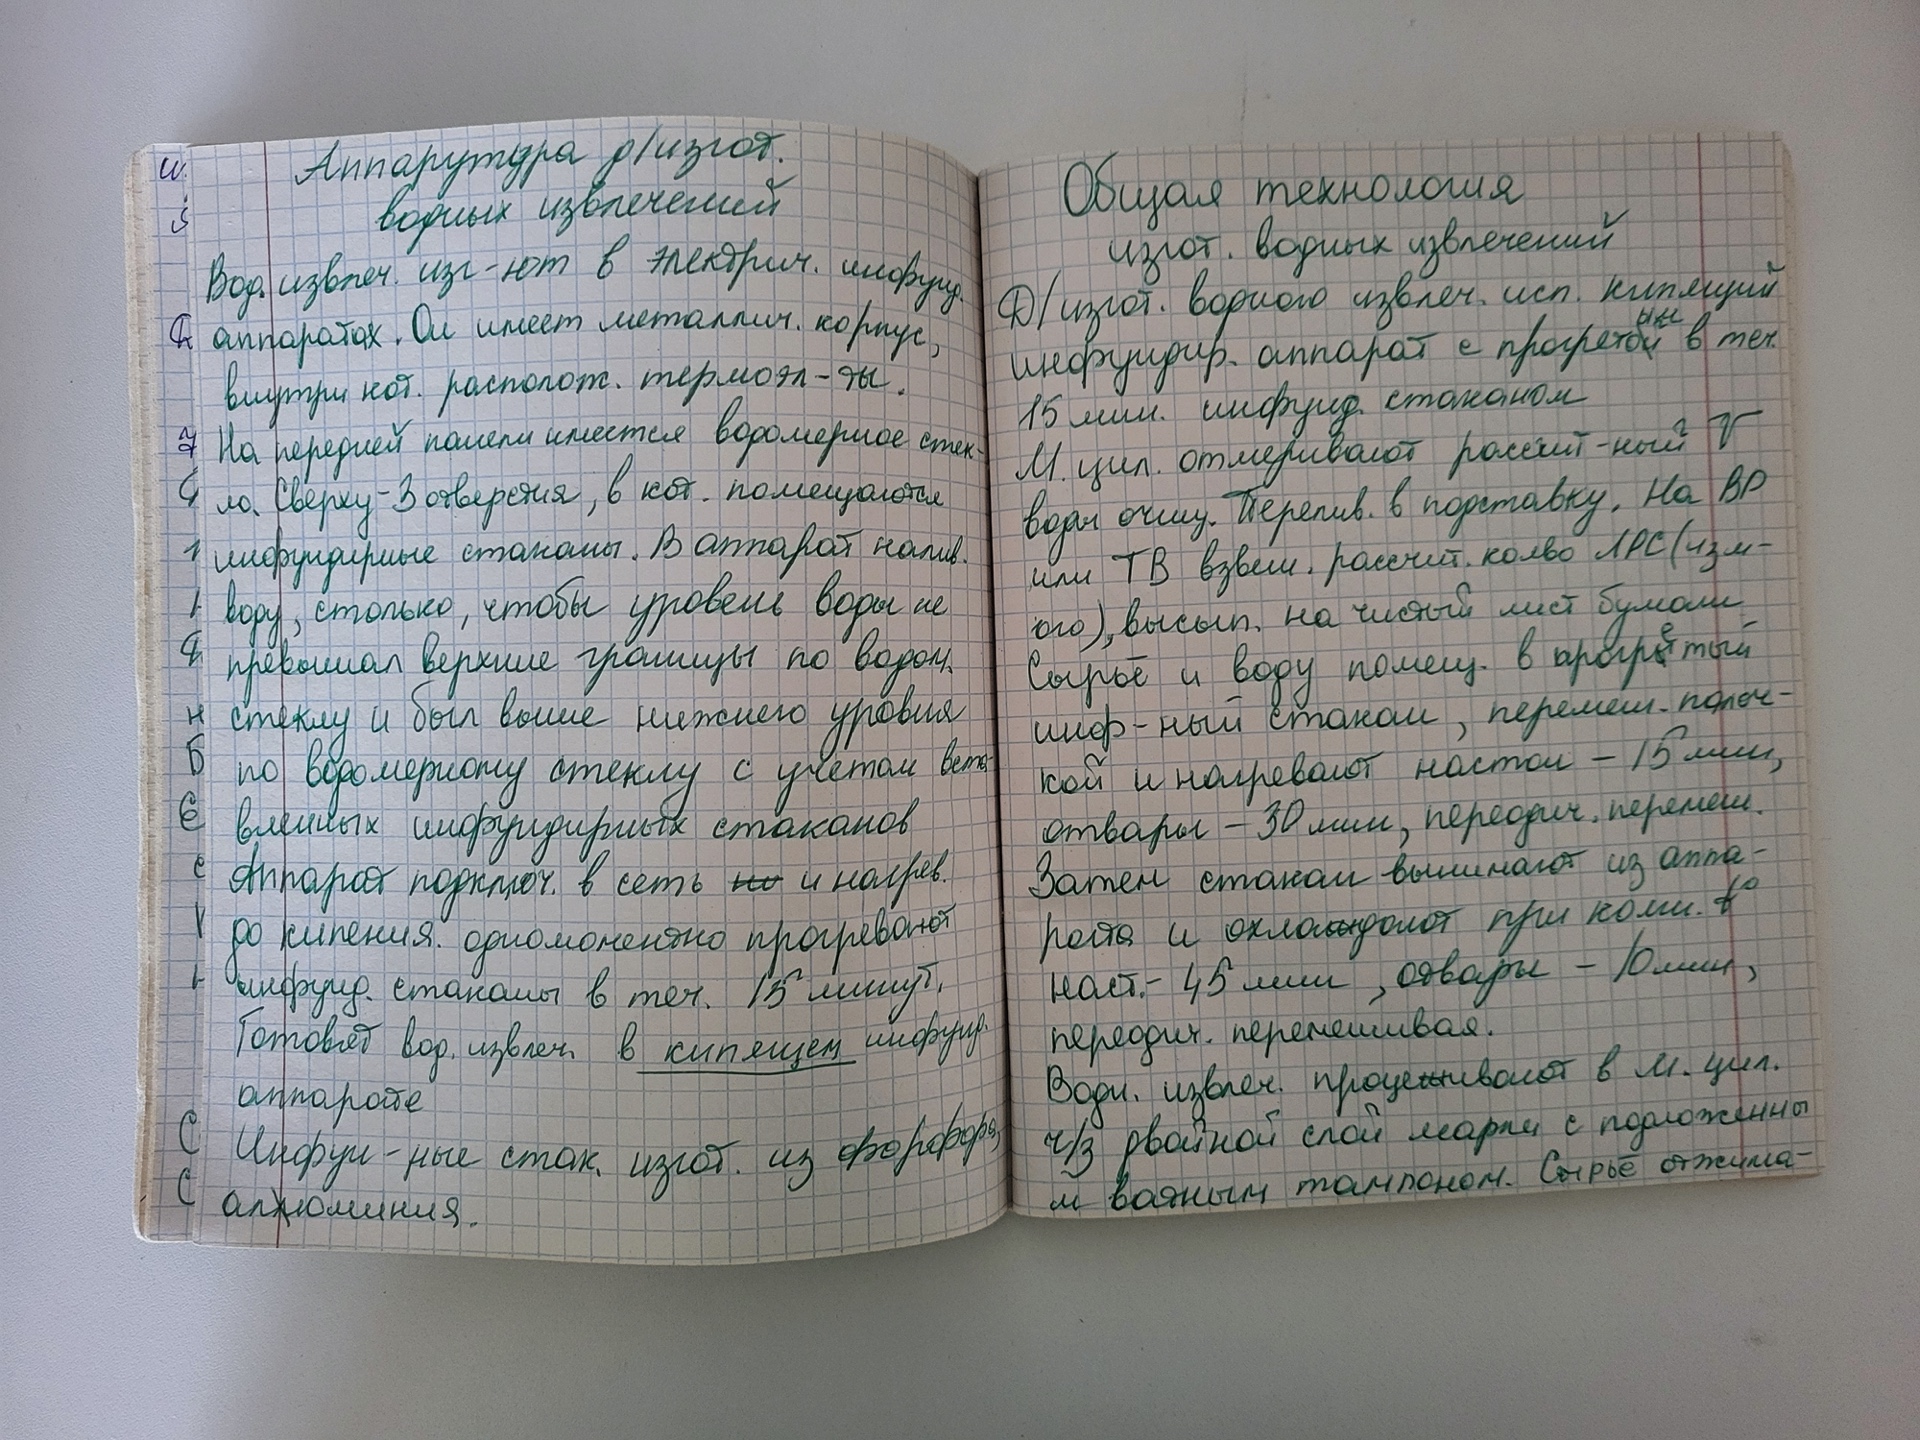 Аппарутура д/изгот.
водных извлечений
Вод. извлеч. изг-ют в электрич. инфунд.
аппаратах. Он имеет металлич. корпус,
внутри кот. располож. термоэл-ты.
На передней панели имеется водомерное стек-
ло. Сверху-3 отверстия, в кот. помещаются
инфундирные стаканы. В аппарат налив.
воду, столько, чтобы уровень воды не
превышал верхние границы по водом.
стеклу и был выше нижнего уровня
по водомерному стеклу с учётом вста-
вленных инфундирных стаканов
Аппарат подключ. в сеть но и нагрев.
до кипения. одномоментно прогревают
инфунд. стаканы в теч. 15 минут.
Готовят вод. извлеч. в кипящем инфунд.
аппарате
Инфун-ные стак. изгот. из фарфора,
алюминия.
Общая технология
изгот. водных извлечений
Д/изгот. водного извлеч. исп. кипящий
инфундир. аппарат с прогретым в теч.
15 мин. инфунд. стаканом
М. цил. отмеривают рассчит-ный V
воды очищ. Перелив. в подставку. На ВР
или ТВ взвеш. рассчит. колво ЛРС (изм-
ого), высып. на чистый лист бумаги
Сырьё и воду помещ. в прогретый
инф-ный стакан, перемеш. палоч-
кой и нагревают настои - 15 мин,
отвары - 30 мин, переодич. перемеш.
Затем стакан вынимают из аппа-
рата и охлаждают при комн. t°
наст.- 45 мин, отвары - 10 мин,
переодич. перемешивая.
Водн. извлеч. процеживают в м. цил.
ч/з двойной слой марли с подложенны
м ватным тампоном. Сырьё отжима-